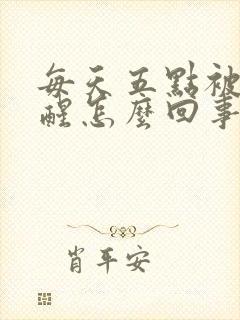 每天五點被
醒怎麼回事
肖平安